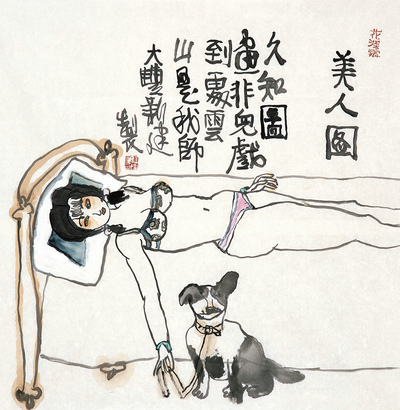 美人图
久知圖
畫非兒戲
到處雲
山是我師
大豐新建
製